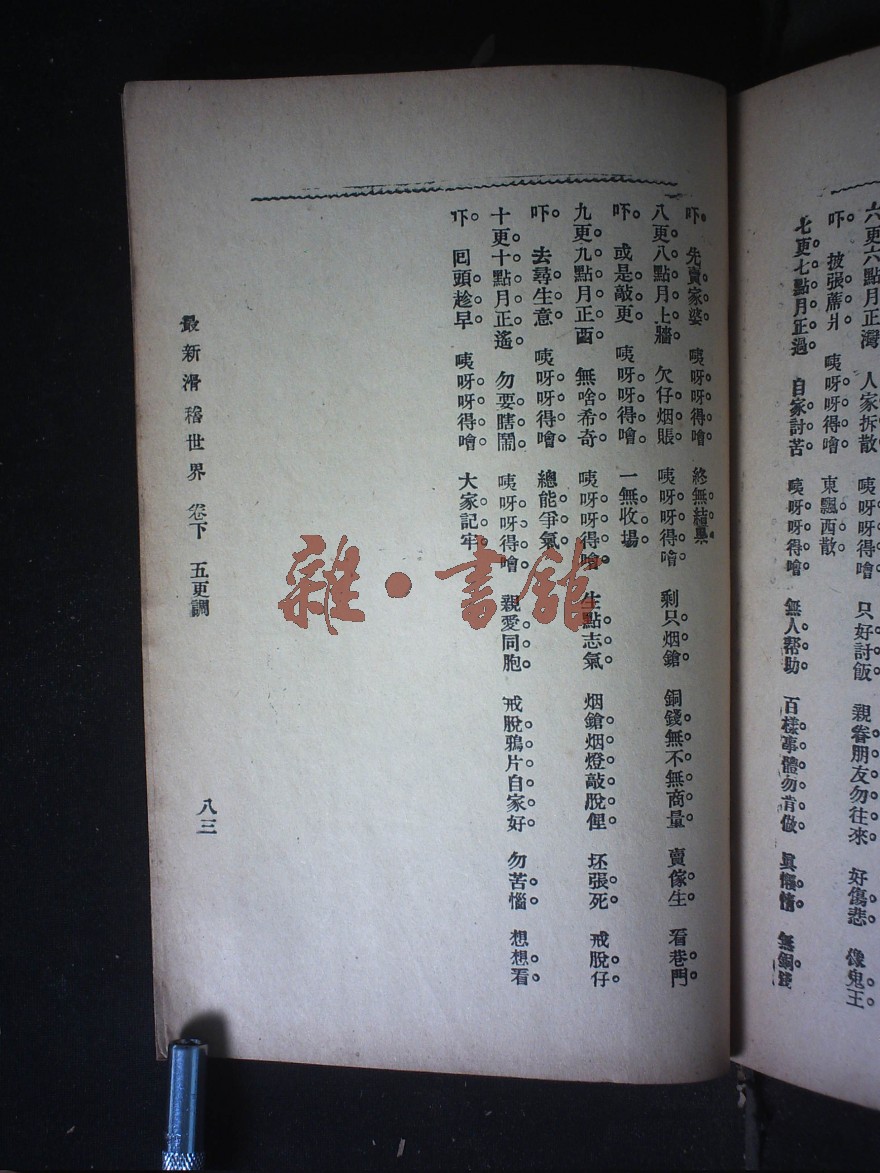 六更六點月正灣　人家拆散　咦呀呀得噲　只好討飯　親眷朋友勿往來　好傷悲　像鬼王
吓。　披張蓆爿　咦呀呀得噲。　東飄西散。
七更七點月正過　自家討苦　咦呀呀得噲　無人帮助　百樣事體勿肯做　眞懶惰　無銅錢
吓。　先賣家婆　咦呀呀得噲。　終無結果。
八更八點月上牆　欠仔烟賬。　咦呀呀得噲　剩只烟鎗　銅錢無不無商量　賣傢生　看巷門
吓。　或是敲更　咦呀呀得噲。　一無收場
九更九點月正酉　無啥希奇　咦呀呀得噲　生點志氣　烟鎗烟燈敲脫俚　坯張死　戒脫仔
吓。　去尋生意　咦呀呀得噲。　總能爭氣
十更十點月正遙　勿要瞎鬧　咦呀呀得噲　親愛同胞　戒脫鴉片自家好　勿苦惱　想想看
吓。　囘頭趁早　咦呀呀得噲。　大家記牢
最新滑稽世界　卷下　五更調
八三
雜·書館